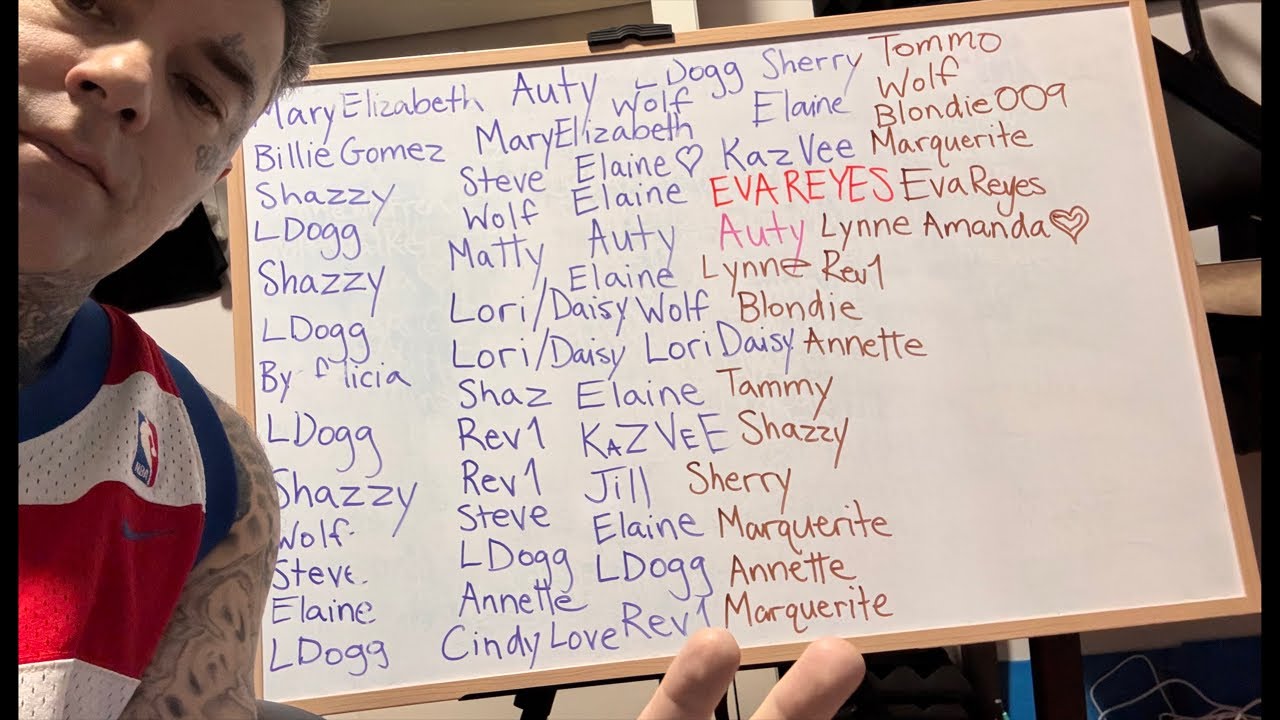 MaryElizabeth Auty LDogg Sherry Tommo
Wolf Elaine Wolf
BillieGomez MaryElizabeth Blondie009
Shazzy Steve Elaine♡ KazVee Marquerite
LDogg Wolf Elaine EVA REYES EvaReyes
Shazzy Matty Auty Auty Lynne Amanda♡
Elaine Lynne Rev1
LDogg Lori/Daisy Wolf Blondie
By licia Lori/Daisy LoriDaisy Annette
LDogg Shaz Elaine Tammy
Shazzy Rev1 KAZVEE Shazzy
Wolf Rev1 Jill Sherry
Steve Steve Elaine Marquerite
Elaine LDogg LDogg Annette
LDogg Annette Rev1 Marquerite
CindyLove
NBA